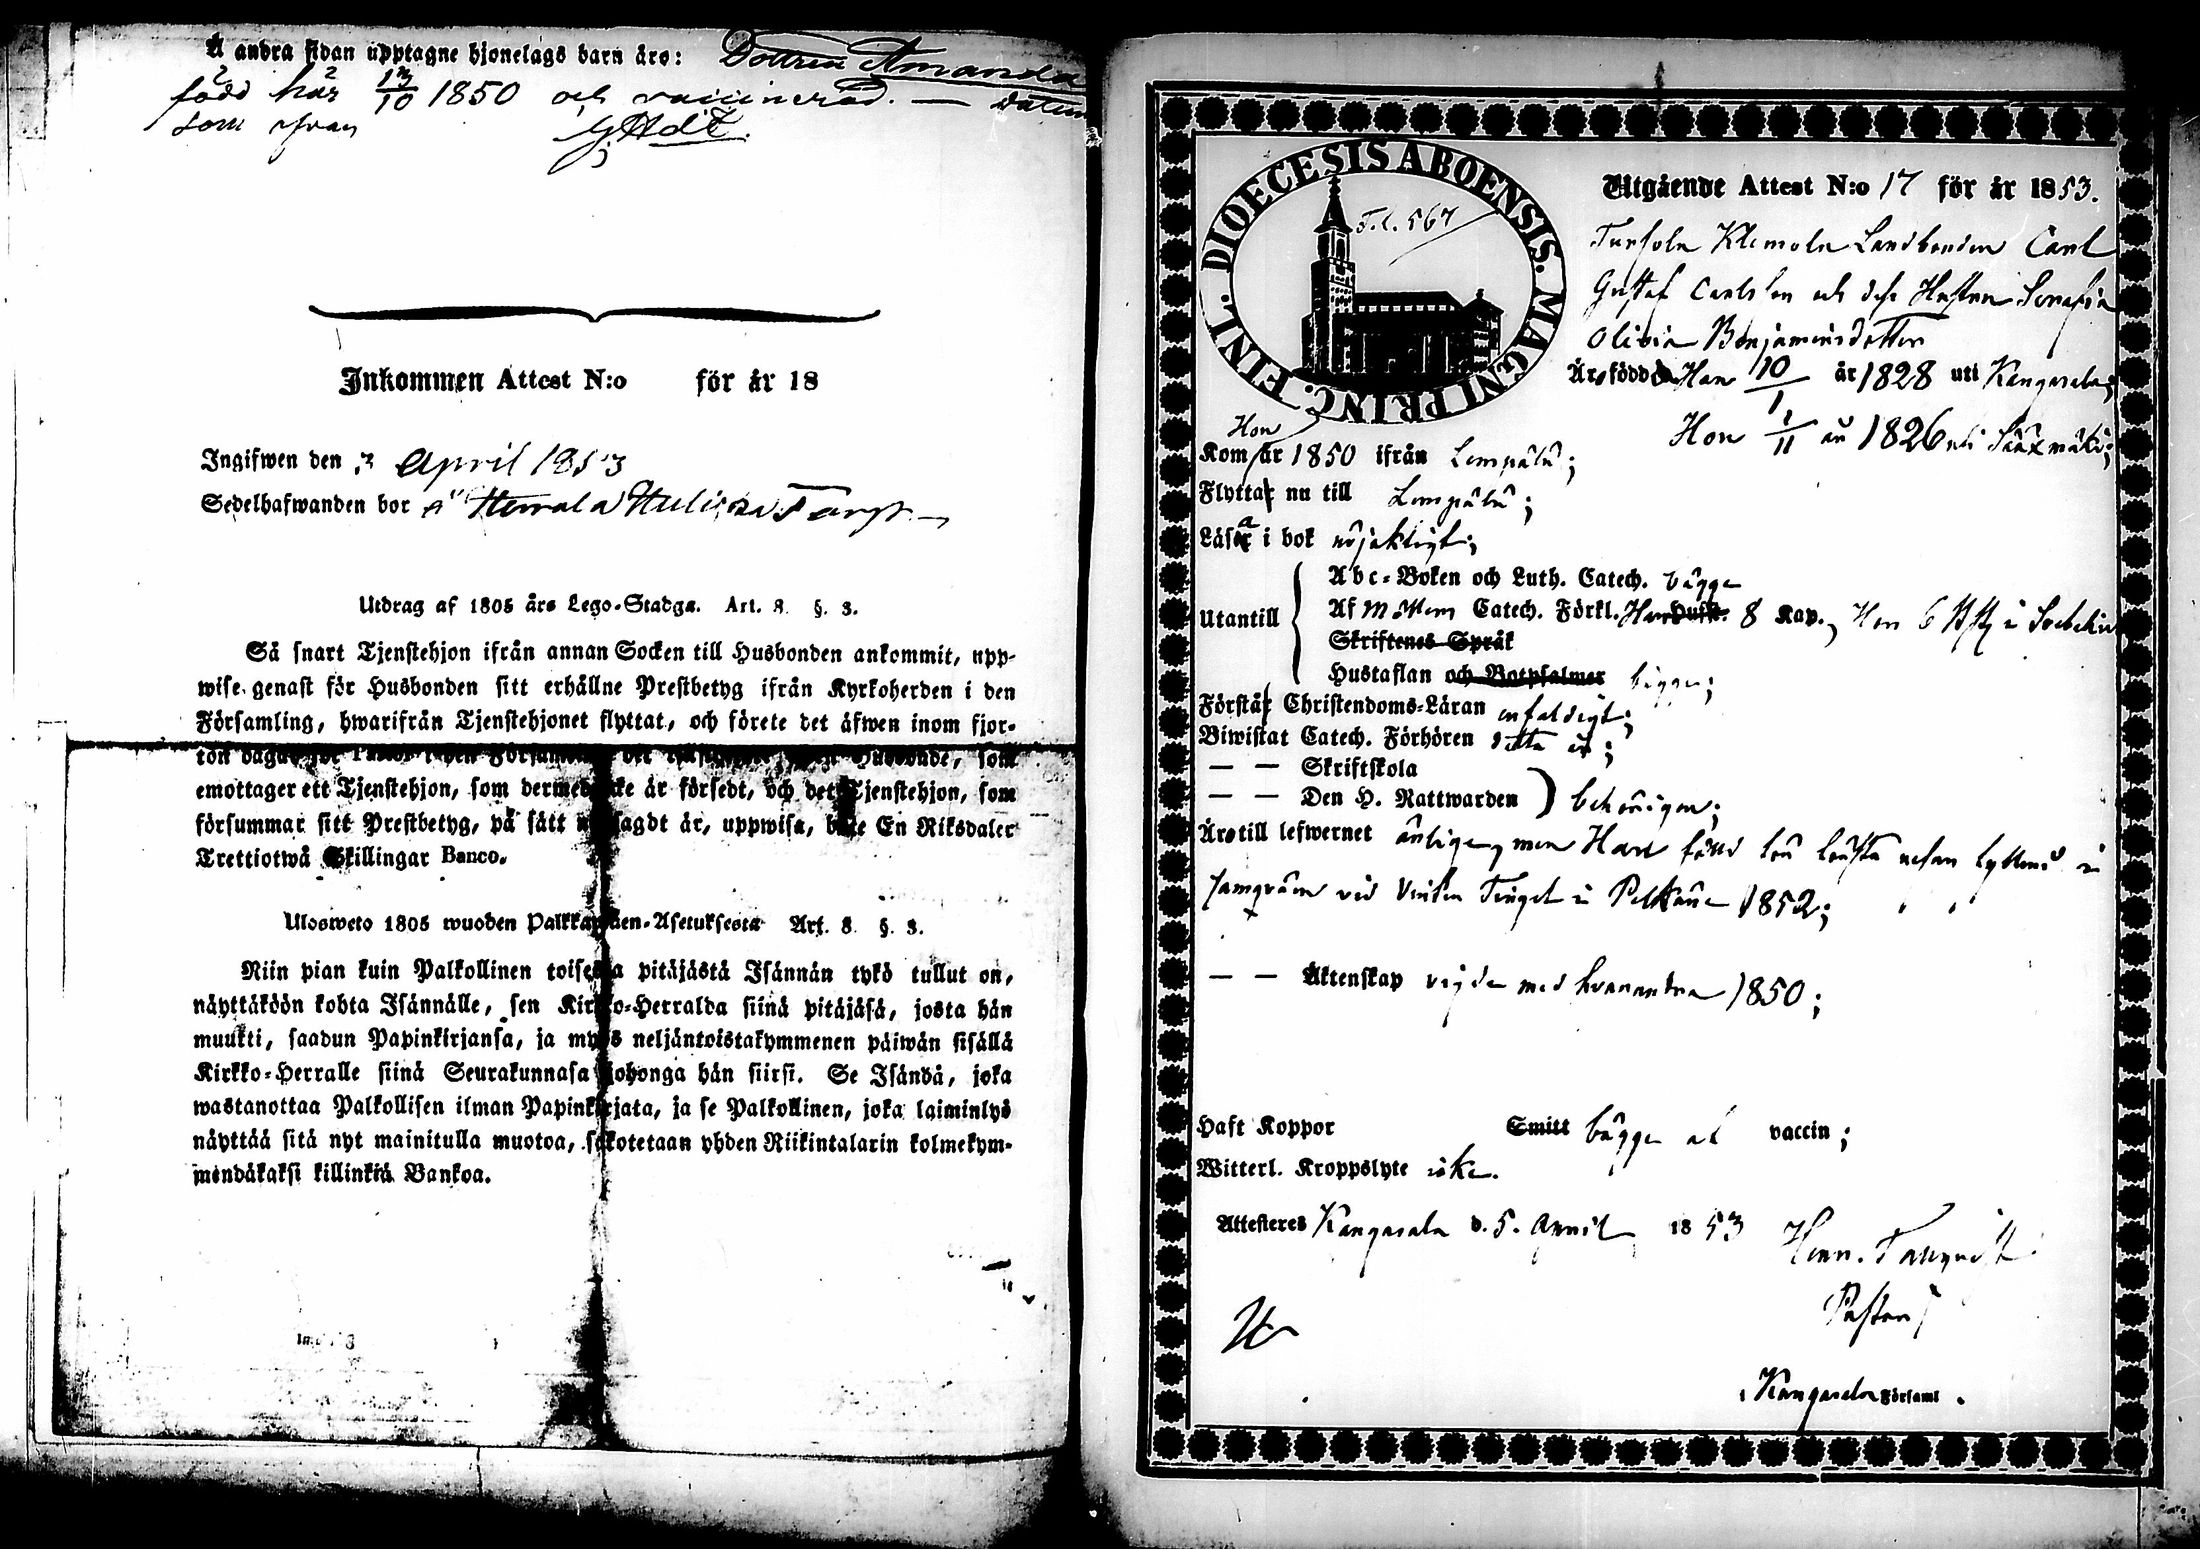 Å andra sidan upptagne hjonelags barn äro: Dottren Amanda
född här 13/10 1850 och vaccinerad. — datum
som ofvan
Inkommen Attest N:o för år 18
Ingifwen den 3 April 1853
Sedelhafwanden bor å Herrala
Utdrag af 1805 års Lego-Stadga. Art. 8. §. 3.
Så snart Tjenstehjon ifrån annan Socken till Husbonden ankommit, upp-
wise genast för Husbonden sitt erhållne Prestbetyg ifrån Kyrkoherden i den
Församling, hwarifrån Tjenstehjonet flyttat, och förete det äfwen inom fjor-
ton dagar för Husbonde, som
emottager ett Tjenstehjon, som dermed icke är försedt, och det Tjenstehjon, som
försummar sitt Prestbetyg, på sätt nu sagdt är, uppwisa, böte En Riksdaler
Trettiotwå Skillingar Banco.
Ulosweto 1805 wuoden Palkkawäen-Asetuksesta Art. 8. §. 3.
Niin pian kuin Palkollinen toisesta pitäjästä Isännän tykö tullut on,
näyttäköön kohta Isännälle, sen Kirkko-Herralda siinä pitäjäsä, josta hän
muutti, saadun Papinkirjansa, ja myös neljäntoistakymmenen päiwän sisällä
Kirkko-Herralle siinä Seurakunnasa johonga hän siirsi. Se Isändä, joka
wastanottaa Palkollisen ilman Papinkirjata, ja se Palkollinen, joka laiminlyö
näyttää sitä nyt mainitulla muotoa, sakotetaan yhden Riikintalarin kolmekym-
mendäkaksi killinkiä Bankoa.
DIOECESIS ABOENSIS. MAGNI PRINC. FINL.
T.l. 567
Utgående Attest N:o 17 för år 1853.
Klemola Landbonden Carl
Gustaf Carlsson och dess Hustru Serafia
Olivia Benjaminsdotter
Äro födde Han 10/1 år 1828 uti Kangasala;
Hon 1/11 år 1826 uti Sääxmäki;
Hon
Kom år 1850 ifrån Lempälä;
Flyttar nu till Lempälä;
Läsa i bok nöjaktigt;
Utantill
Abc-Boken och Luth. Catech. bägge
Af Möllers Catech. Förkl. Han 8 Kap., Hon 6 i Svebelii
Skriftenes Språk
Hustaflan och Botpsalmer bägge;
Förstår Christendoms-Läran enfaldigt;
Biwistat Catech. Förhören detta år;
— — Skriftskola
— — Den H. Nattwarden behörigen;
Äro till lefwernet ärlige, men Han
vid Vinter Tinget i Pelkäne 1852;
— — Äktenskap vigde med hvarandra 1850;
Haft Koppor Smitt bägge af vaccin;
Witterl. Kroppslyte icke.
Attesteras Kangasala d. 5. April 1853
Pastor
Kangasala Församl.